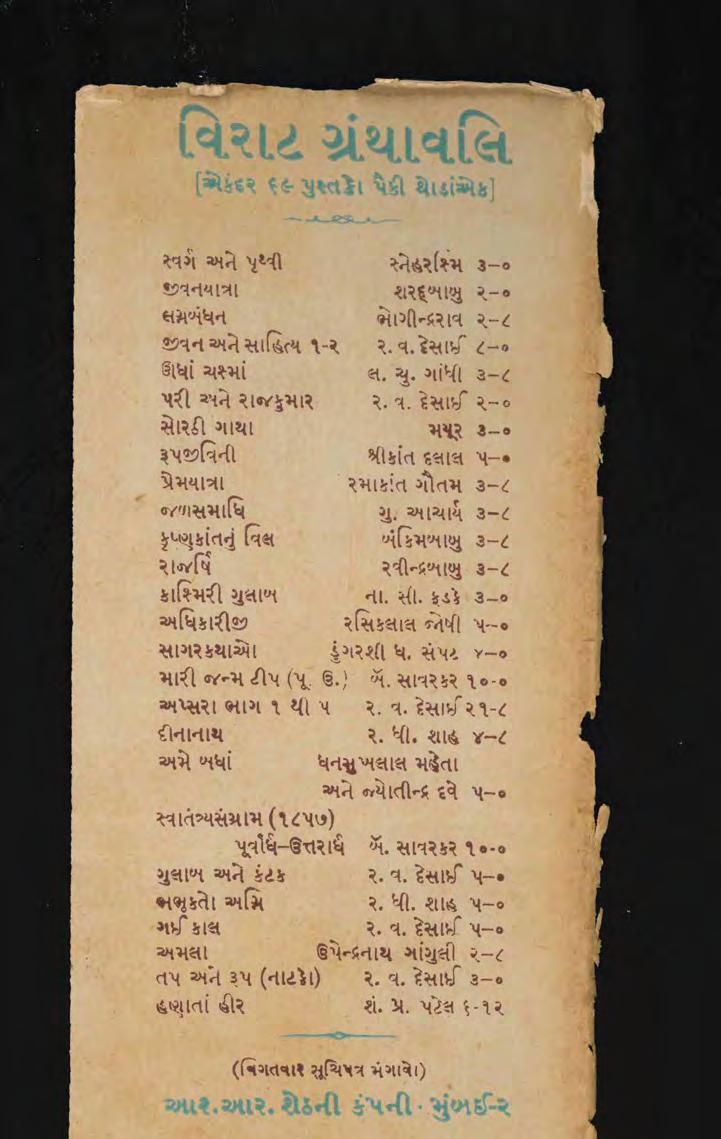 વિરાટ ગ્રંથાવલિ
[એકંદર ૬૯ પુસ્તકો પૈકી થોડાંએક]
સ્વર્ગ અને પૃથ્વી સ્નેહરશ્મિ ૩–૦
જીવનયાત્રા શરદ્બાબુ ૨–૦
લગ્નબંધન ભોગીન્દ્રરાવ ૨–૮
જીવન અને સાહિત્ય ૧-૨ ર. વ. દેસાઈ ૮–૦
ઊંધાં ચશ્માં લ. ચુ. ગાંધી ૩–૮
પરી અને રાજકુમાર ર. વ. દેસાઈ ૨–૦
સોરઠી ગાથા મયૂર ૩–૦
રૂપજીવિની શ્રીકાંત દલાલ ૫–૦
પ્રેમયાત્રા રમાકાંત ગૌતમ ૩–૮
જળસમાધિ ગુ. આચાર્ય ૩–૮
કૃષ્ણકાંતનું વિલ બંકિમબાબુ ૩–૮
રાજર્ષિ રવીન્દ્રબાબુ ૩–૮
કાશ્મિરી ગુલાબ ના. સી. ફડકે ૩–૦
અધિકારીજી રસિકલાલ જોષી ૫–૦
સાગરકથાઓ ડુંગરશી ધ. સંપટ ૪–૦
મારી જન્મટીપ (પૂ. ઉ.) બૅ. સાવરકર ૧૦-૦
અપ્સરા ભાગ ૧ થી ૫ ર. વ. દેસાઈ ૨૧-૮
દીનાનાથ ર. ધી. શાહ ૪–૮
અમે બધાં ધનસુખલાલ મહેતા
અને જ્યોતીન્દ્ર દવે ૫–૦
સ્વાતંત્ર્યસંગ્રામ (૧૮૫૭)
પૂર્વાર્ધ–ઉત્તરાર્ધ બૅ. સાવરકર ૧૦-૦
ગુલાબ અને કંટક ર. વ. દેસાઈ ૫–૦
ભભૂકતો અગ્નિ ર. ધી. શાહ ૫–૦
ગઈ કાલ ર. વ. દેસાઈ ૫–૦
અમલા ઉપેન્દ્રનાથ ગાંગુલી ૨–૮
તપ અને રૂપ (નાટકો) ર. વ. દેસાઈ ૩–૦
હણાતાં હીર શં. પ્ર. પટેલ ૬-૧૨
(વિગતવાર સૂચિપત્ર મંગાવો)
આર.આર. શેઠની કંપની · મુંબઈ-૨